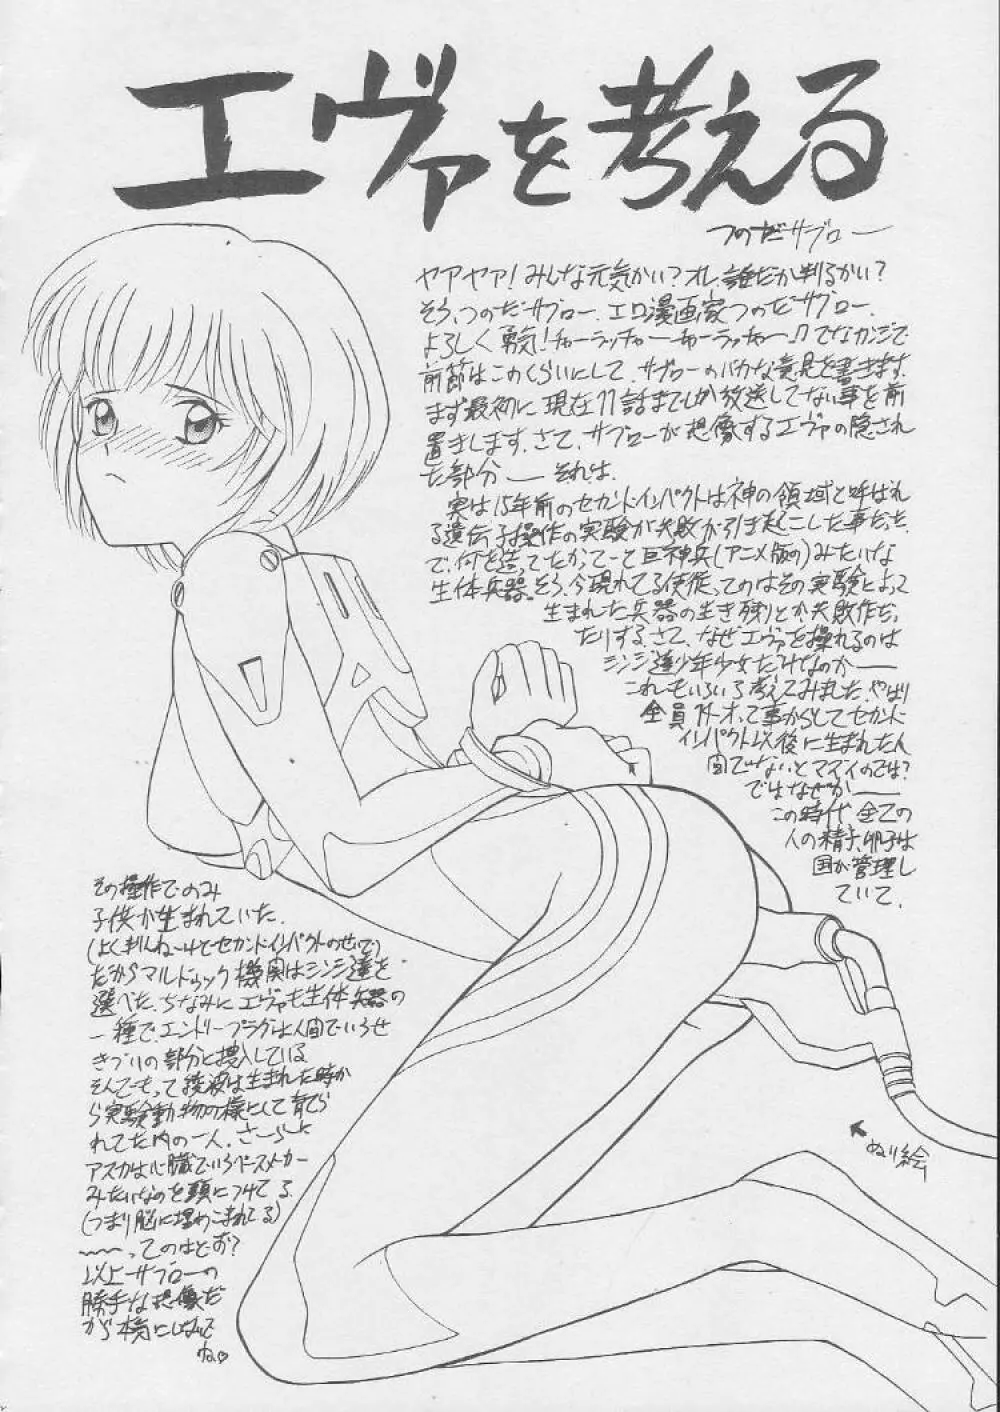 エヴァを考える
つのだサブロー
ヤアヤァ!みんな元気かい?オレ、誰だか判るかい?
そう、つのだサブロー、エロ漫画家つのだサブロー、
よろしく勇気!チャーラッチャーチャーラッチャー♫でなカンジで
前節はこのくらいにして、サブローのバカな意見を書きます。
まず最初に現在11話までしか放送してない事を前
置きします。さて、サブローが想像するエヴァの隠され
た部分──それは、
実は15年前のセカンドインパクトは神の領域と呼ばれ
る遺伝子操作の実験が失敗が引き起こした事だった
で、何を造ってたかてーと巨神兵(アニメ版の)みたいな
生体兵器。そう、今現れてる使徒ってのはその実験によって
生まれた兵器の生き残りとか失敗作だっ
たりする。さて、なぜエヴァを操れるのは
シンジ達少年少女だけなのか──
これもいろいろ考えてみました。やはり
全員14才って事からしてセカンド
インパクト以後に生まれた人
間でないとマズイのでは?
ではなぜか──
この時代、全ての
人の精子、卵子は
国が管理し
ていて、
その操作でのみ
子供が生まれていた。
(よく判んねーけでセカンドインパクトのせいで)
だからマルドゥック機関はシンジ達を
選べた。ちなみにエヴァも生体兵器の
一種で、エントリープラグは人間でいうせ
きづいの部分と挿入している
そんでもって綾波は生まれた時か
ら実験動物の様にして育てら
れてた内の一人。さーらに
アスカは心臓でいうペースメーカー
みたいなのを頭につけてる。
(つまり脳に埋めこまれてる)
~~~ってのはど・お?
以上サブローの
勝手な想像だ
から本気にしないで
ね♡
ぬり絵